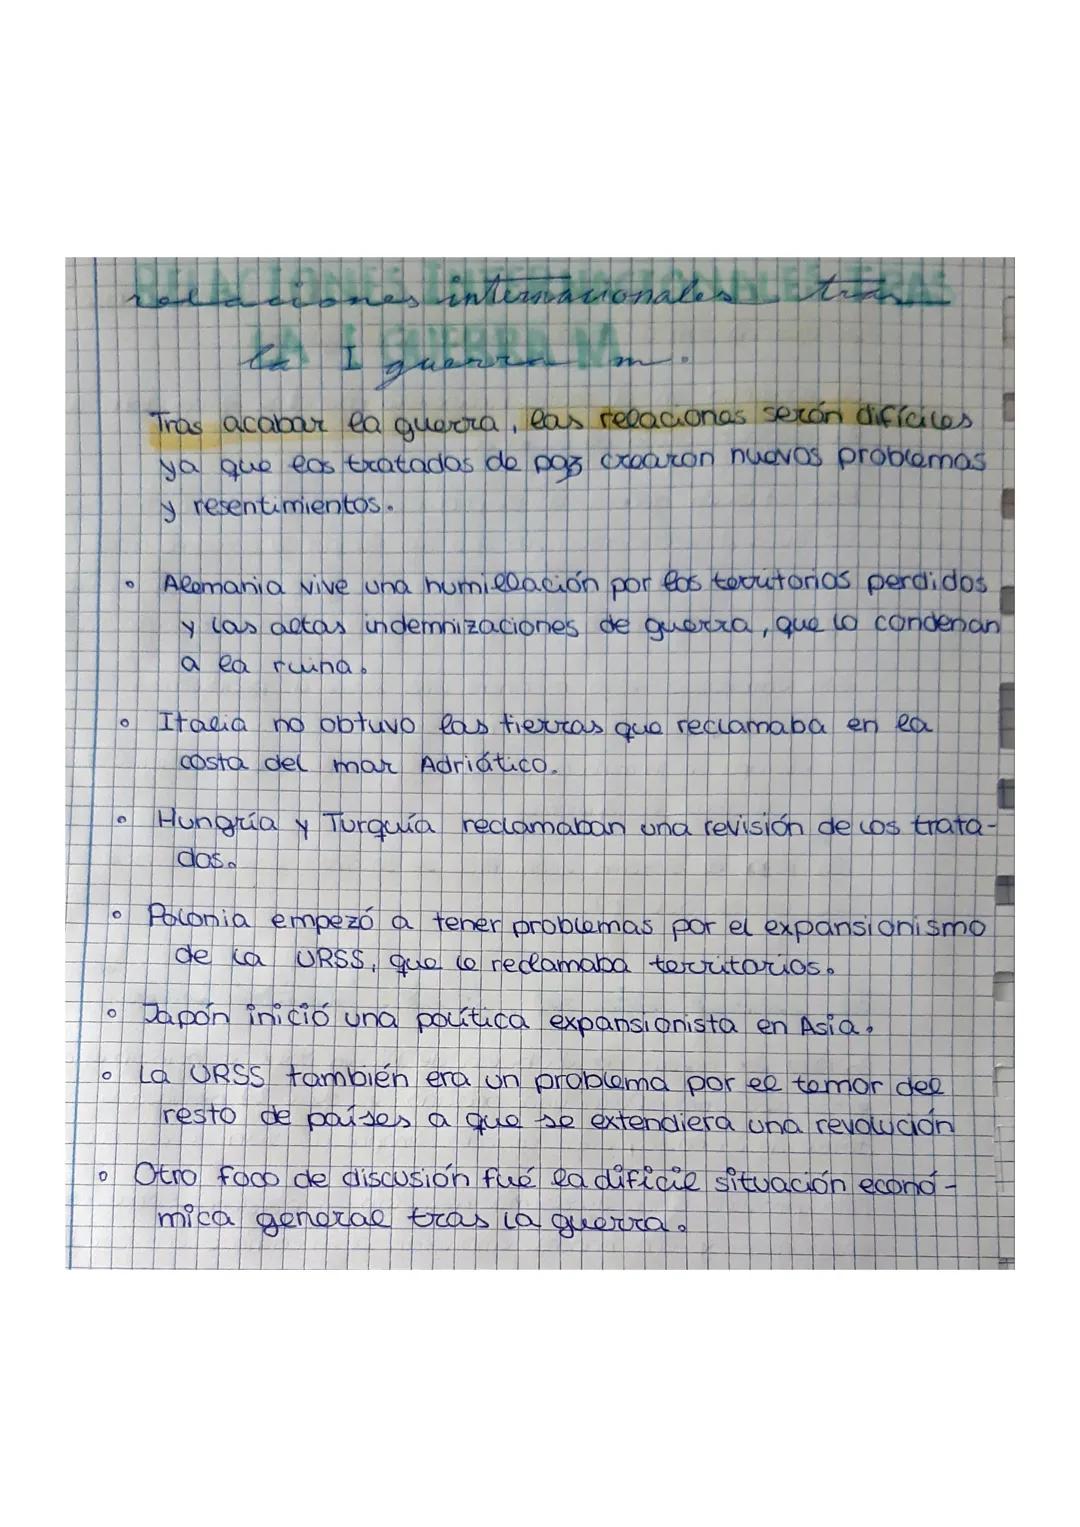 relaciones internacionales tras
la I guerra m.
Tras acabar la guerra, las relaciones serán difíciles
ya que los tratados de paz crearon nuevos problemas
y resentimientos.
• Alemania vive una humillación por los territorios perdidos
y las altas indemnizaciones de guerra, que lo condenan
a la ruina.
• Italia no obtuvo las tierras que reclamaba en la
costa del mar Adriático.
• Hungría y Turquía reclamaban una revisión de los trata-
dos.
• Polonia empezó a tener problemas por el expansionismo
de la URSS, que le reclamaba territorios.
• Japón inició una política expansionista en Asia.
• La URSS también era un problema por el temor del
resto de países a que se extendiera una revolución
• Otro foco de discusión fué la dificil situación econó-
mica general tras la guerra.